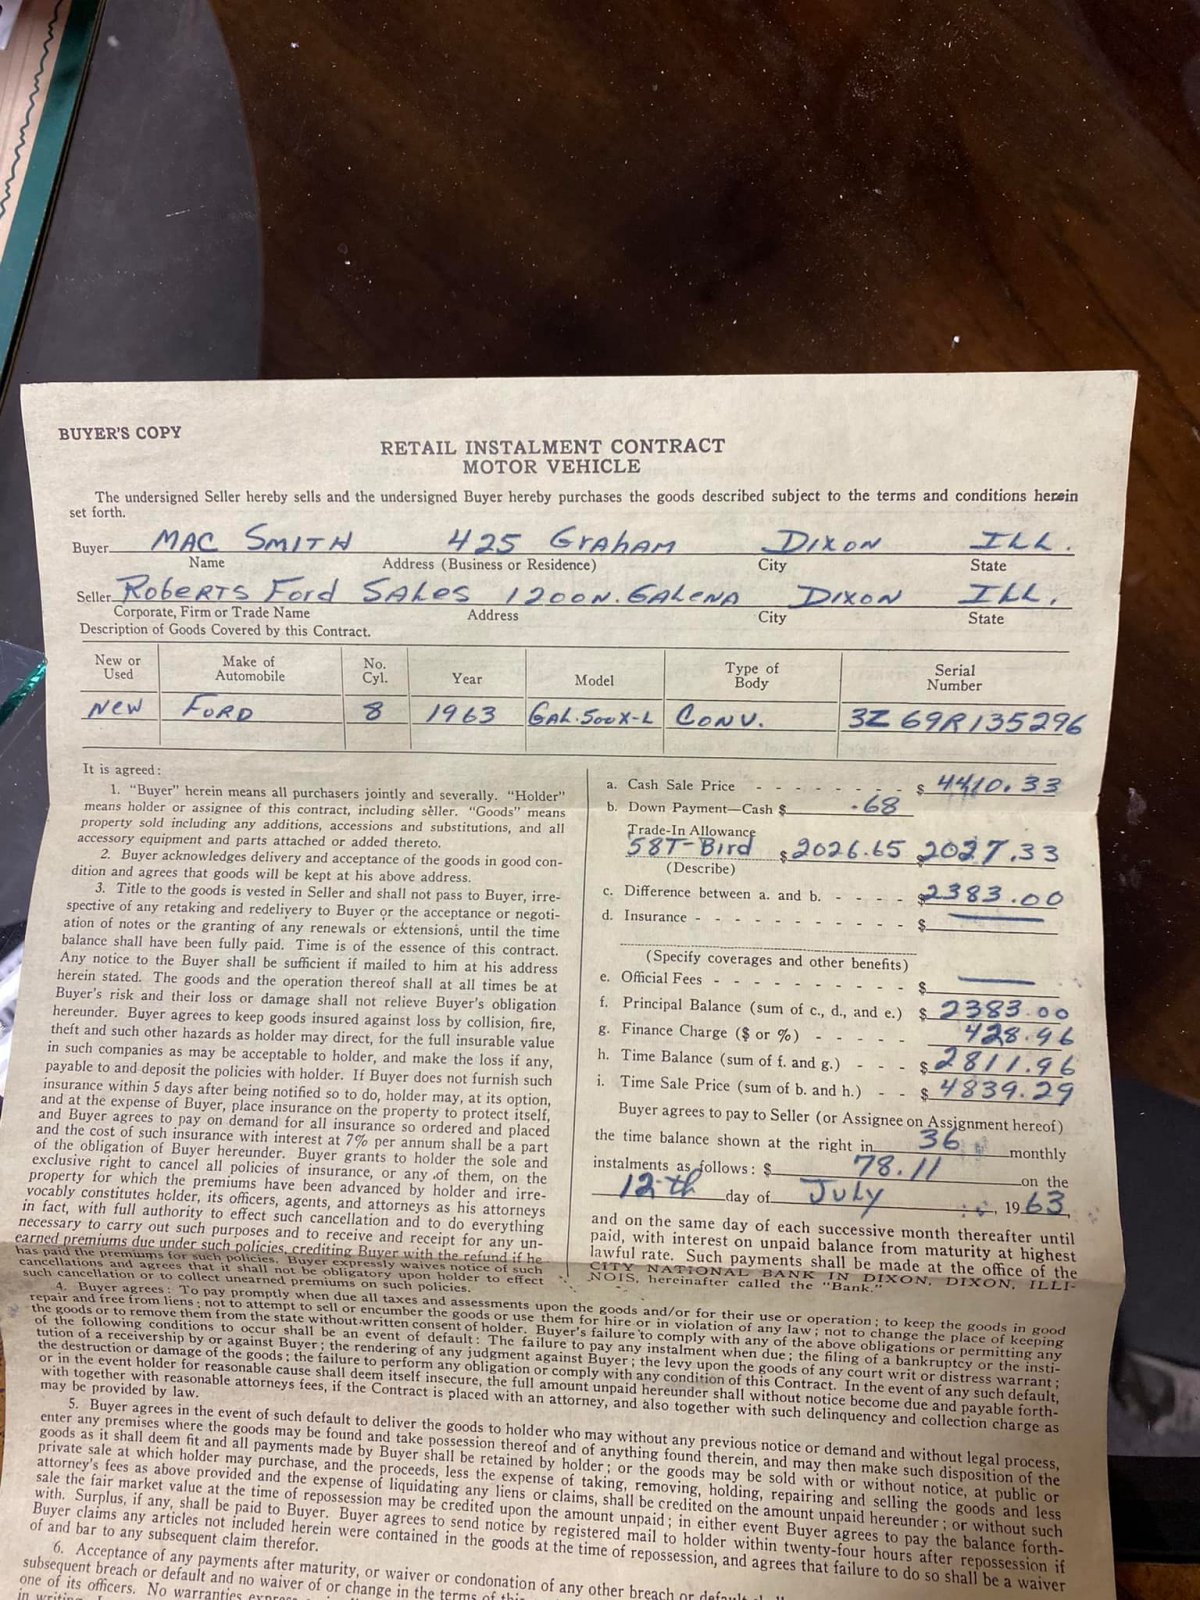 BUYER'S COPY
RETAIL INSTALMENT CONTRACT
MOTOR VEHICLE
The undersigned Seller hereby sells and the undersigned Buyer hereby purchases the goods described subject to the terms and conditions herein
set forth.
Buyer MAC SMITH 425 GRAHAM DIXON ILL.
Name Address (Business or Residence) City State
Seller Roberts Ford Sales 1200 N. GALENA DIXON ILL.
Corporate, Firm or Trade Name Address City State
Description of Goods Covered by this Contract.
New or Used Make of Automobile No. Cyl. Year Model Type of Body Serial Number
New FORD 8 1963 GAL. 500 X-L CONV. 3Z 69R135296
It is agreed:
1. "Buyer" herein means all purchasers jointly and severally. "Holder"
means holder or assignee of this contract, including seller. "Goods" means
property sold including any additions, accessions and substitutions, and all
accessory equipment and parts attached or added thereto.
2. Buyer acknowledges delivery and acceptance of the goods in good con-
dition and agrees that goods will be kept at his above address.
3. Title to the goods is vested in Seller and shall not pass to Buyer, irre-
spective of any retaking and redelivery to Buyer or the acceptance or negoti-
ation of notes or the granting of any renewals or extensions, until the time
balance shall have been fully paid. Time is of the essence of this contract.
Any notice to the Buyer shall be sufficient if mailed to him at his address
herein stated. The goods and the operation thereof shall at all times be at
Buyer's risk and their loss or damage shall not relieve Buyer's obligation
hereunder. Buyer agrees to keep goods insured against loss by collision, fire,
theft and such other hazards as holder may direct, for the full insurable value
in such companies as may be acceptable to holder, and make the loss if any,
payable to and deposit the policies with holder. If Buyer does not furnish such
insurance within 5 days after being notified so to do, holder may, at its option,
and at the expense of Buyer, place insurance on the property to protect itself,
and Buyer agrees to pay on demand for all insurance so ordered and placed
and the cost of such insurance with interest at 7% per annum shall be a part
of the obligation of Buyer hereunder. Buyer grants to holder the sole and
exclusive right to cancel all policies of insurance, or any of them, on the
property for which the premiums have been advanced by holder and irre-
vocably constitutes holder, its officers, agents, and attorneys as his attorneys
in fact, with full authority to effect such cancellation and to do everything
necessary to carry out such purposes and to receive and receipt for any un-
earned premiums due under such policies, crediting Buyer with the refund if he
has paid the premiums for such policies. Buyer expressly waives notice of such
cancellations and agrees that it shall not be obligatory upon holder to effect
such cancellation or to collect unearned premiums on such policies.
a. Cash Sale Price - - - - - - - - $ 4410.33
b. Down Payment—Cash $ .68
Trade-In Allowance
58 T-Bird $ 2026.65 $ 2027.33
(Describe)
c. Difference between a. and b. - - - - $ 2383.00
d. Insurance - - - - - - - - - - $ —
(Specify coverages and other benefits)
e. Official Fees - - - - - - - - - $ —
f. Principal Balance (sum of c., d., and e.) $ 2383.00
g. Finance Charge ($ or %) - - - - - 428.96
h. Time Balance (sum of f. and g.) - - - $ 2811.96
i. Time Sale Price (sum of b. and h.) - - $ 4839.29
Buyer agrees to pay to Seller (or Assignee on Assignment hereof)
the time balance shown at the right in 36 monthly
instalments as follows: $ 78.11 on the
12th day of July, 1963,
and on the same day of each successive month thereafter until
paid, with interest on unpaid balance from maturity at highest
lawful rate. Such payments shall be made at the office of the
CITY NATIONAL BANK IN DIXON, DIXON, ILLI-
NOIS, hereinafter called the "Bank."
4. Buyer agrees: To pay promptly when due all taxes and assessments upon the goods and/or for their use or operation; to keep the goods in good
repair and free from liens; not to attempt to sell or encumber the goods or use them for hire or in violation of any law; not to change the place of keeping
the goods or to remove them from the state without written consent of holder. Buyer's failure to comply with any of the above obligations or permitting any
of the following conditions to occur shall be an event of default: The failure to pay any instalment when due; the filing of a bankruptcy or the insti-
tution of a receivership by or against Buyer; the rendering of any judgment against Buyer; the levy upon the goods of any court writ or distress warrant;
the destruction or damage of the goods; the failure to perform any obligation or comply with any condition of this Contract. In the event of any such default,
or in the event holder for reasonable cause shall deem itself insecure, the full amount unpaid hereunder shall without notice become due and payable forth-
with together with reasonable attorneys fees, if the Contract is placed with an attorney, and also together with such delinquency and collection charge as
may be provided by law.
5. Buyer agrees in the event of such default to deliver the goods to holder who may without any previous notice or demand and without legal process,
enter any premises where the goods may be found and take possession thereof and of anything found therein, and may then make such disposition of the
goods as it shall deem fit and all payments made by Buyer shall be retained by holder; or the goods may be sold with or without notice, at public or
private sale at which holder may purchase, and the proceeds, less the expense of taking, removing, holding, repairing and selling the goods and less
attorney's fees as above provided and the expense of liquidating any liens or claims, shall be credited on the amount unpaid hereunder; or without such
sale the fair market value at the time of repossession may be credited upon the amount unpaid; in either event Buyer agrees to pay the balance forth-
with. Surplus, if any, shall be paid to Buyer. Buyer agrees to send notice by registered mail to holder within twenty-four hours after repossession if
Buyer claims any articles not included herein were contained in the goods at the time of repossession, and agrees that failure to do so shall be a waiver
of and bar to any subsequent claim therefor.
6. Acceptance of any payments after maturity, or waiver or condonation of any other breach or
subsequent breach or default and no waiver of or change in the terms of
one of its officers. No warranties
in writing.